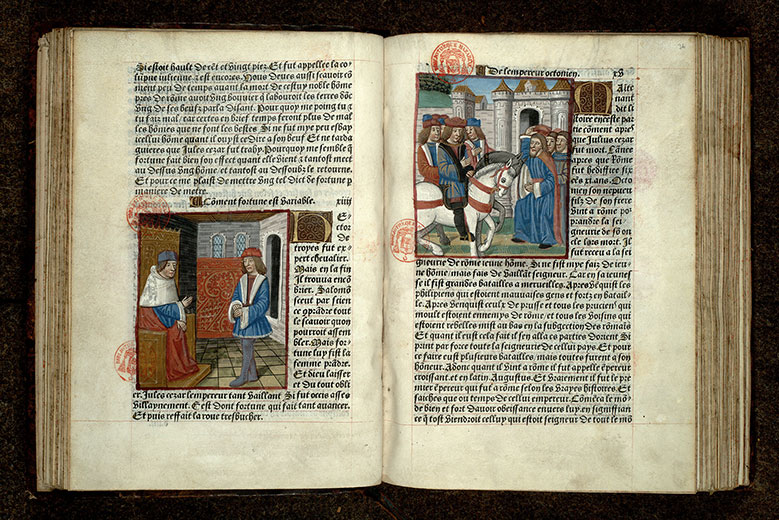 Si estoit hault de .cẽt et vingt piez. Et fut appellee la co
lũpne iulienne / z est encores. Nous deues aussi scauoir cõ
ment peu de temps auant la mort de cestuy noble hõme
pres de rõme auoit vng bouuier q̃ labouroit les terres dõc
vng de les beufz parla disant. Pour quoy me poing tu z
tu fais mal / car certes en brief temps seront plus de mal
les hõmes que ne sont les bestes. Si ne fut mye peu esbay
cellui hõme quant il ouyst ce dire a son beuf. Et ne tarda
guieres que Jules cezar fut trahy. Pourquoy me semble q̃
fortune fait bien son effect quant elle vient z tantost met
au dessus vng hõme / et tantost au dessoubz le retourne.
Et pour ce me plaist de mettre vng tel dict de fortune p
maniere de metre.
Cõment fortune est variable. xiiii
Ector
de
troyes fut ex
pert cheualier.
Mais en la fin
Il trouua encõ
brier. Salomõ
sceut par scien
ce cõprãdre tout
le scauoir quon
pourroit assem
bler. Mais for
tune luy fist la
femme prãdre.
Et dieu laisser
et du tout obli
er. Jules cezar lempereur tant vaillant. Si fut occis asses
villaynement. Cest dont fortune qui fait tant auancer.
Et puis reffait la roue tresbucher.
De lempereur octouien. xv
Aite
nant
dit l
istoire en ceste par
tie cõment apres
que Julius cezar
fut mort. Lãnee
apres que Rõme
fut hedifice six
ces z xi. ans. Octo
uien son nepueu
filz de son frere
vint a rõme po
prandre la sei
gneurie de sõ on
cle lors mort. Il
fut receu a la sei
gneurie de rõme ieune hõme. Si ne fist mye faiz de ieu
ne hõme / mais faiz de vaillãt seigneur. Car en sa ieunes
se il fist grandes batailles a merueilles. Apres vẽquist les
philipiens qui estoient mauuaises gens et fortz en batail
le. Apres venquist ceulx de prusse et tous les prucien qui
moult estoient ennemys de rõme / et tous les voisins qui
estoient rebelles mist au bas en la subgection des rõmais
Et quant il eust cela fait il sen alla es parties dorient Si
print par force toute la seigneurie de cellui pays. Et pour
ce faire eust plusieurs batailles / mais toutes furent a son
hõneur. Adonc quant il vint a rõme il fut appelle ẽpereur
croissant / et en latin Augustus. Et vraiement il fut le pre
mier ẽpereur qui fut a rõme selon les vrayes histoires. Et
saiches que ou temps de cellui empereur. Cõmẽca le mõ
de bien et fort dauoir obeissance enuers luy / en signiffiãn
ce q̃ tost viendroit celluy qui estoit seigneur de tout le mõ